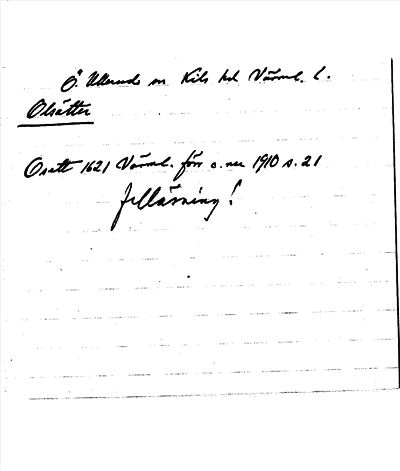 Ö. Ullerud sn Kils hd Värml. l.
Olsätter
Osatt 1621 Värml. förr o. nu 1910 s. 21
felläsning!